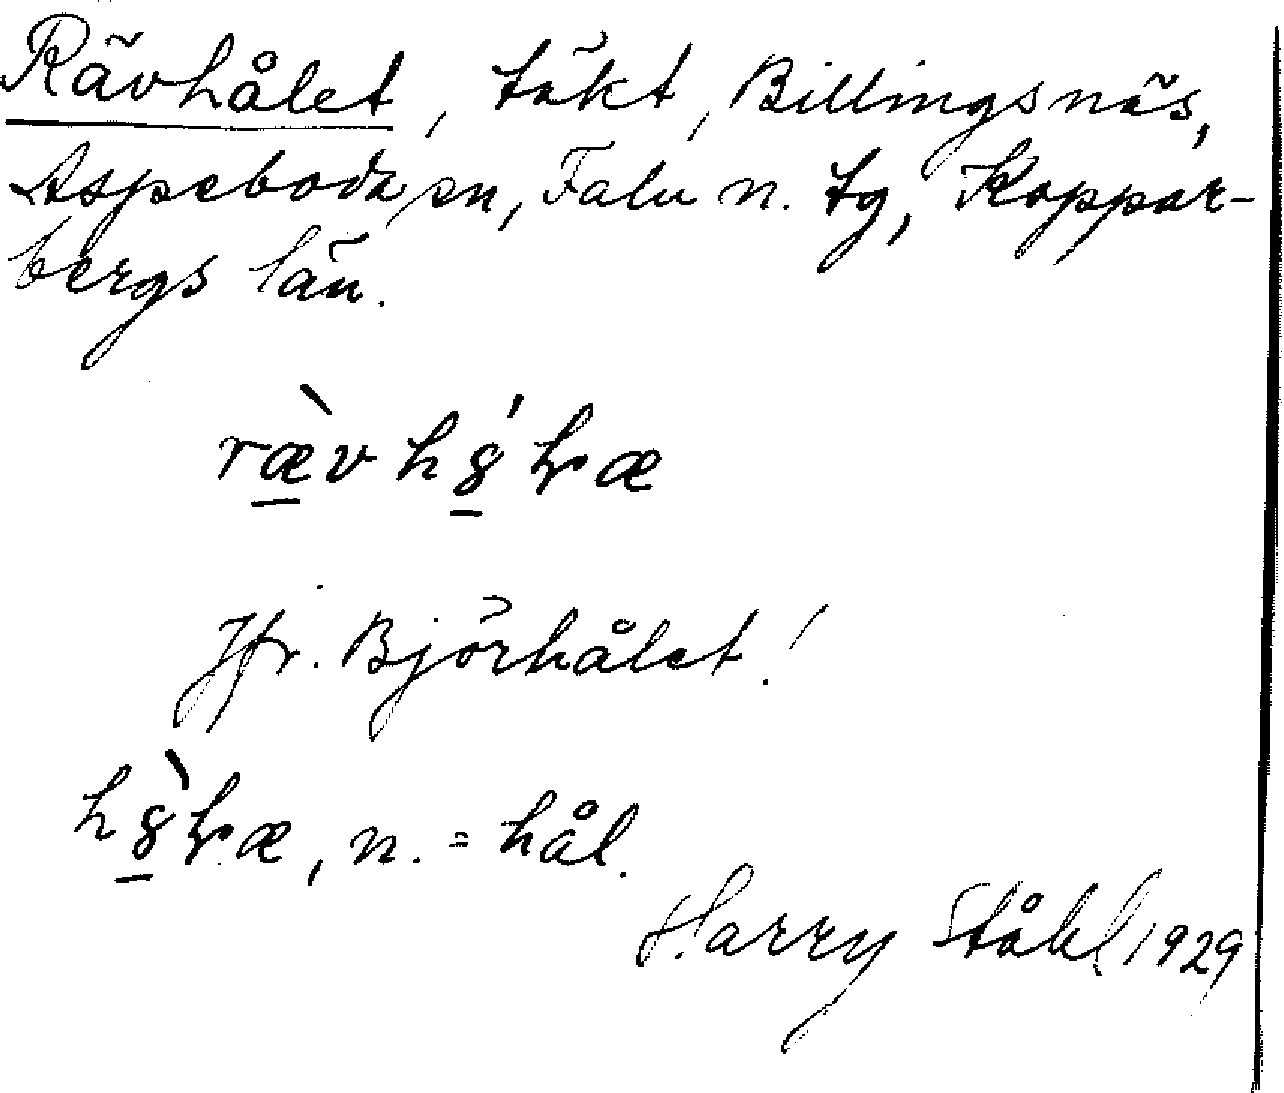 Rävhålet, täkt, Billingsnäs,
Aspeboda sn, Falu n. tg, Koppar-
bergs län.
Jfr. Björhålet!
n. = hål.
Harry Ståhl 1929